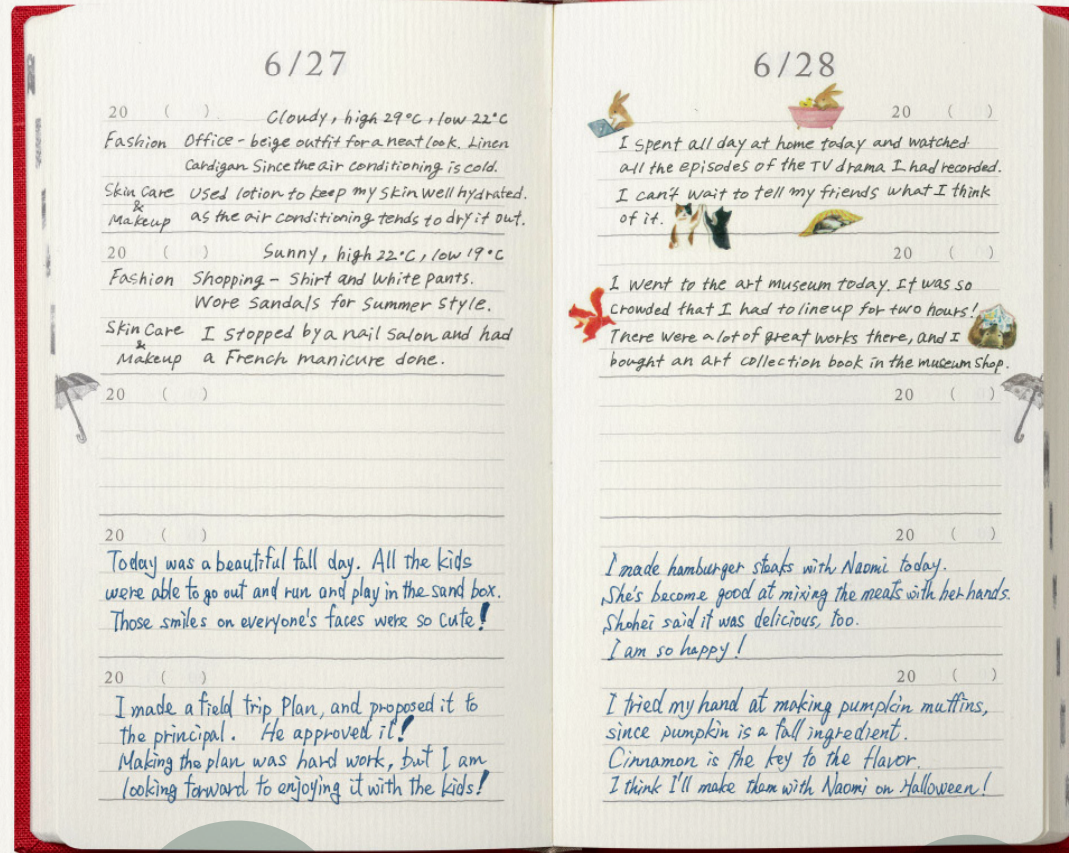 6/27
20 ( ) Cloudy, high 29°C, low 22°C
Fashion Office - beige outfit for a neat look. Linen
Cardigan Since the air conditioning is cold.
Skin Care used lotion to keep my skin well hydrated.
&
Makeup as the air conditioning tends to dry it out.
20 ( ) Sunny, high 22°C, low 19°C
Fashion Shopping - Shirt and white pants.
Wore sandals for summer style.
Skin Care I stopped by a nail salon and had
&
Makeup a French manicure done.
20 ( )
20 ( )
Today was a beautiful fall day. All the kids
were able to go out and run and play in the sand box.
Those smiles on everyone's faces were so cute!
20 ( )
I made a field trip Plan, and proposed it to
the principal. He approved it!
Making the plan was hard work, but I am
looking forward to enjoying it with the kids!
6/28
20 ( )
I spent all day at home today and watched
all the episodes of the TV drama I had recorded.
I can't wait to tell my friends what I think
of it.
20 ( )
I went to the art museum today. It was so
crowded that I had to line up for two hours!
There were a lot of great works there, and I
bought an art collection book in the museum shop.
20 ( )
20 ( )
I made hamburger steaks with Naomi today.
She's become good at mixing the meats with her hands.
Shohei said it was delicious, too.
I am so happy!
20 ( )
I tried my hand at making pumpkin muffins,
since pumpkin is a fall ingredient.
Cinnamon is the key to the flavor.
I think I'll make them with Naomi on Halloween!